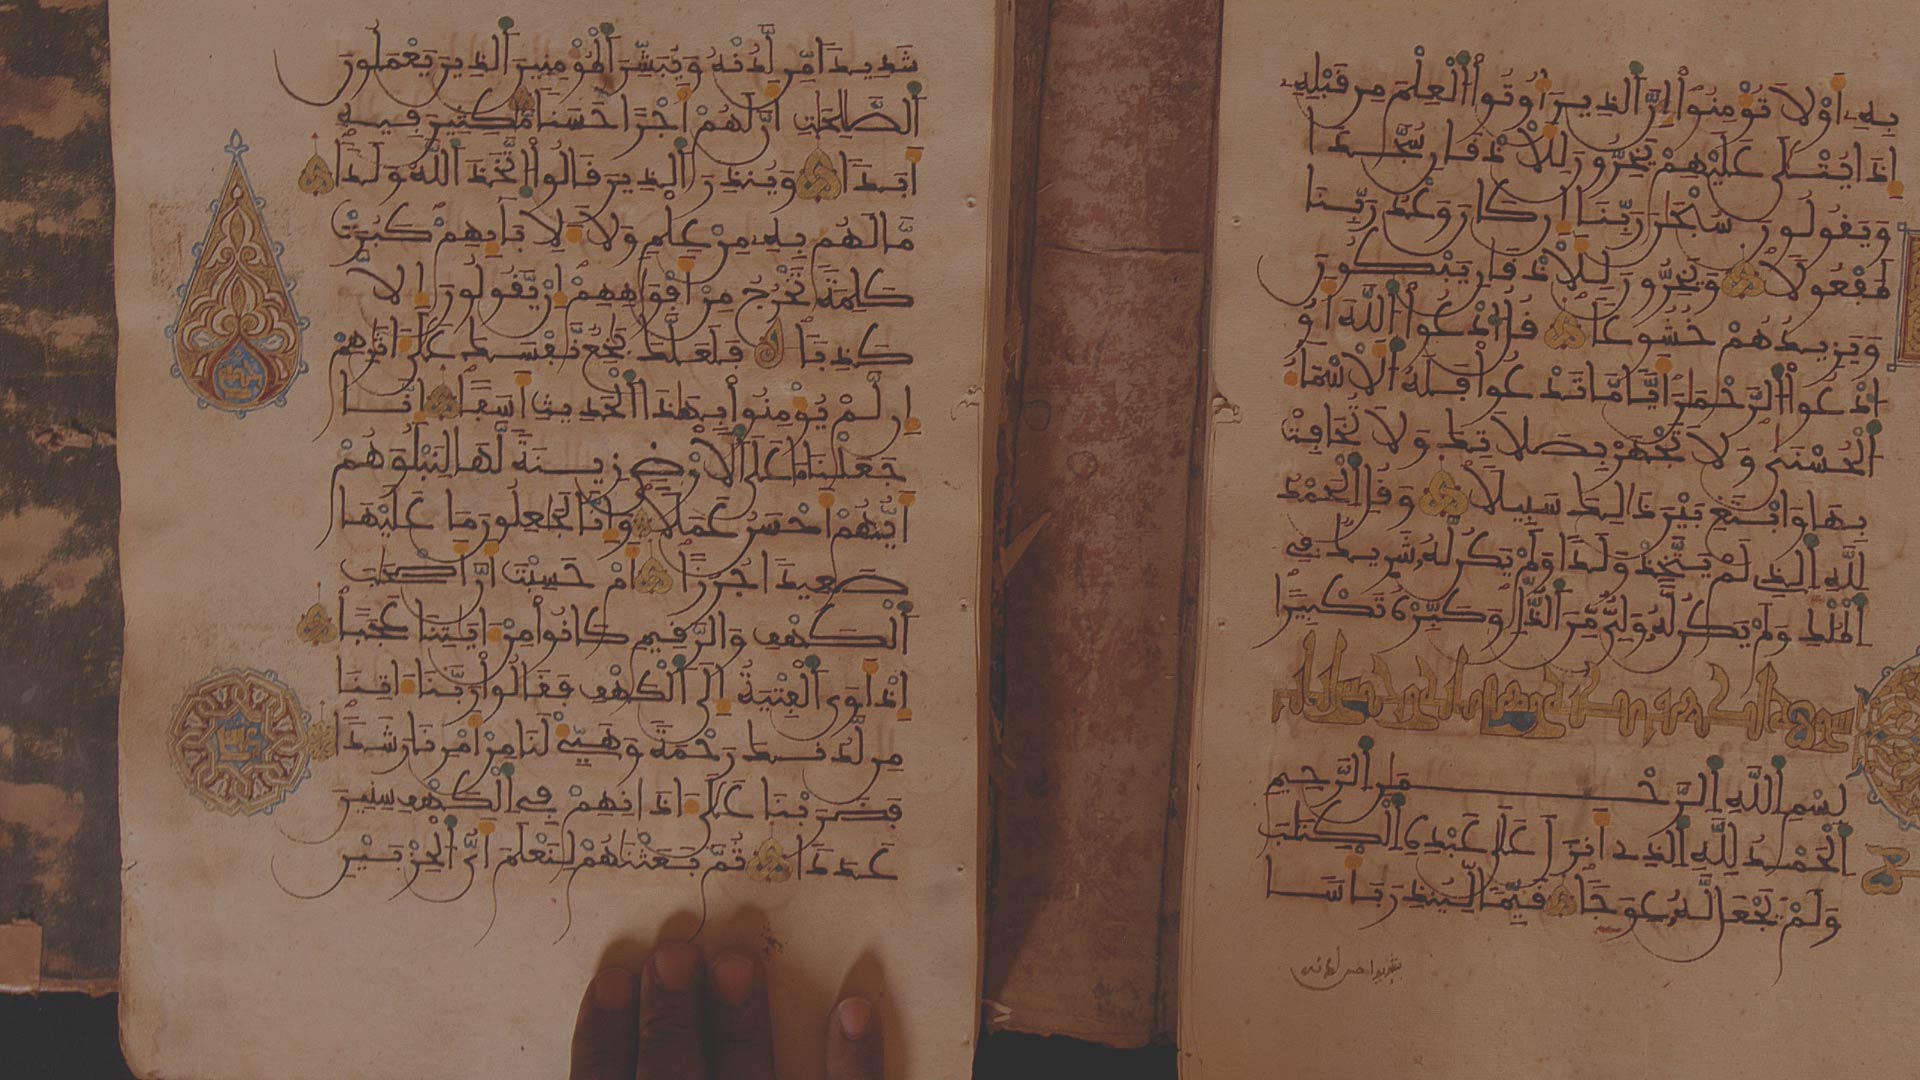 بِهِۦ أَوْ لَا تُؤْمِنُوٓا۟ إِنَّ ٱلَّذِينَ أُوتُوا۟ ٱلْعِلْمَ مِن قَبْلِهِۦٓ
إِذَا يُتْلَىٰ عَلَيْهِمْ يَخِرُّونَ لِلْأَذْقَانِ سُجَّدًا
وَيَقُولُونَ سُبْحَٰنَ رَبِّنَآ إِن كَانَ وَعْدُ رَبِّنَا
لَمَفْعُولًا وَيَخِرُّونَ لِلْأَذْقَانِ يَبْكُونَ
وَيَزِيدُهُمْ خُشُوعًا قُلُ ٱدْعُوا۟ ٱللَّهَ أَوُ
ٱدْعُوا۟ ٱلرَّحْمَٰنَ أَيًّا مَّا تَدْعُوا۟ فَلَهُ ٱلْأَسْمَآءُ
ٱلْحُسْنَىٰ وَلَا تَجْهَرْ بِصَلَاتِكَ وَلَا تُخَافِتْ
بِهَا وَٱبْتَغِ بَيْنَ ذَٰلِكَ سَبِيلًا وَقُلِ ٱلْحَمْدُ
لِلَّهِ ٱلَّذِى لَمْ يَتَّخِذْ وَلَدًا وَلَمْ يَكُن لَّهُۥ شَرِيكٌ فِى
ٱلْمُلْكِ وَلَمْ يَكُن لَّهُۥ وَلِىٌّ مِّنَ ٱلذُّلِّ وَكَبِّرْهُ تَكْبِيرًا
بِسْمِ ٱللَّهِ ٱلرَّحْمَٰنِ ٱلرَّحِيمِ
ٱلْحَمْدُ لِلَّهِ ٱلَّذِىٓ أَنزَلَ عَلَىٰ عَبْدِهِ ٱلْكِتَٰبَ
وَلَمْ يَجْعَل لَّهُۥ عِوَجًا قَيِّمًا لِّيُنذِرَ بَأْسًا
شَدِيدًا مِّن لَّدُنْهُ وَيُبَشِّرَ ٱلْمُؤْمِنِينَ ٱلَّذِينَ يَعْمَلُونَ
ٱلصَّٰلِحَٰتِ أَنَّ لَهُمْ أَجْرًا حَسَنًا مَّٰكِثِينَ فِيهِ
أَبَدًا وَيُنذِرَ ٱلَّذِينَ قَالُوا۟ ٱتَّخَذَ ٱللَّهُ وَلَدًا
مَّا لَهُم بِهِۦ مِنْ عِلْمٍ وَلَا لِأٓبَآئِهِمْ كَبُرَتْ
كَلِمَةً تَخْرُجُ مِنْ أَفْوَٰهِهِمْ إِن يَقُولُونَ إِلَّا
كَذِبًا فَلَعَلَّكَ بَٰخِعٌ نَّفْسَكَ عَلَىٰٓ ءَاثَٰرِهِمْ
إِن لَّمْ يُؤْمِنُوا۟ بِهَٰذَا ٱلْحَدِيثِ أَسَفًا إِنَّا
جَعَلْنَا مَا عَلَى ٱلْأَرْضِ زِينَةً لَّهَا لِنَبْلُوَهُمْ
أَيُّهُمْ أَحْسَنُ عَمَلًا وَإِنَّا لَجَٰعِلُونَ مَا عَلَيْهَا
صَعِيدًا جُرُزًا أَمْ حَسِبْتَ أَنَّ أَصْحَٰبَ
ٱلْكَهْفِ وَٱلرَّقِيمِ كَانُوا۟ مِنْ ءَايَٰتِنَا عَجَبًا
إِذْ أَوَى ٱلْفِتْيَةُ إِلَى ٱلْكَهْفِ فَقَالُوا۟ رَبَّنَآ ءَاتِنَا
مِن لَّدُنكَ رَحْمَةً وَهَيِّئْ لَنَا مِنْ أَمْرِنَا رَشَدًا
فَضَرَبْنَا عَلَىٰٓ ءَاذَانِهِمْ فِى ٱلْكَهْفِ سِنِينَ
عَدَدًا ثُمَّ بَعَثْنَٰهُمْ لِنَعْلَمَ أَىُّ ٱلْحِزْبَيْنِ